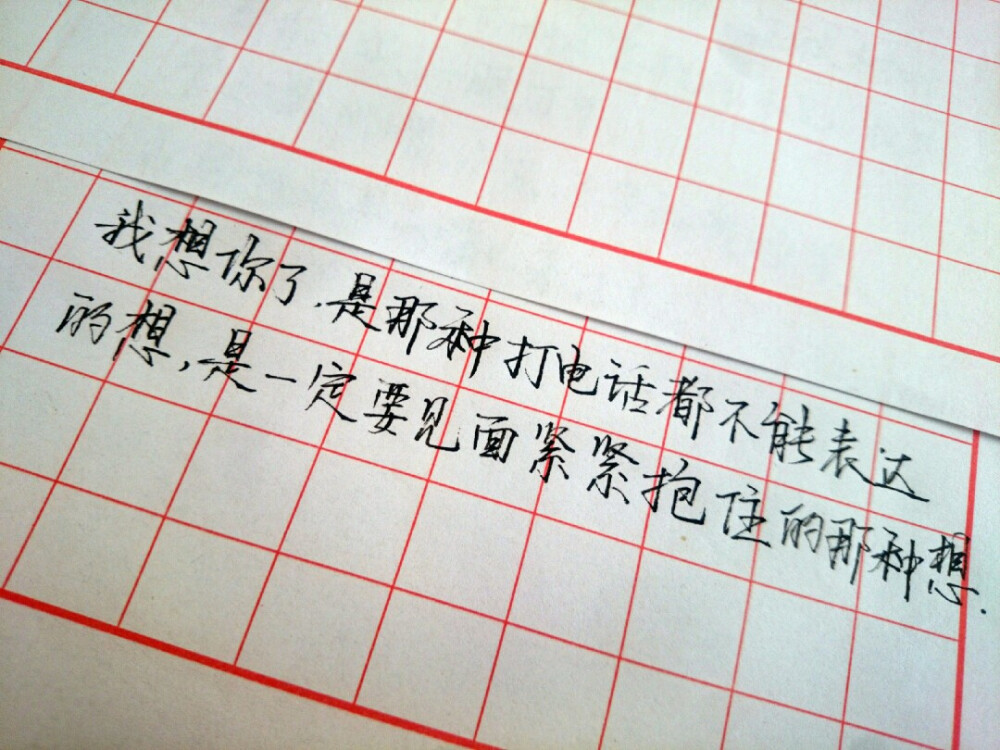 我想你了.是那种打电话都不能表达
的想,是一定要见面紧紧抱住的那种想.